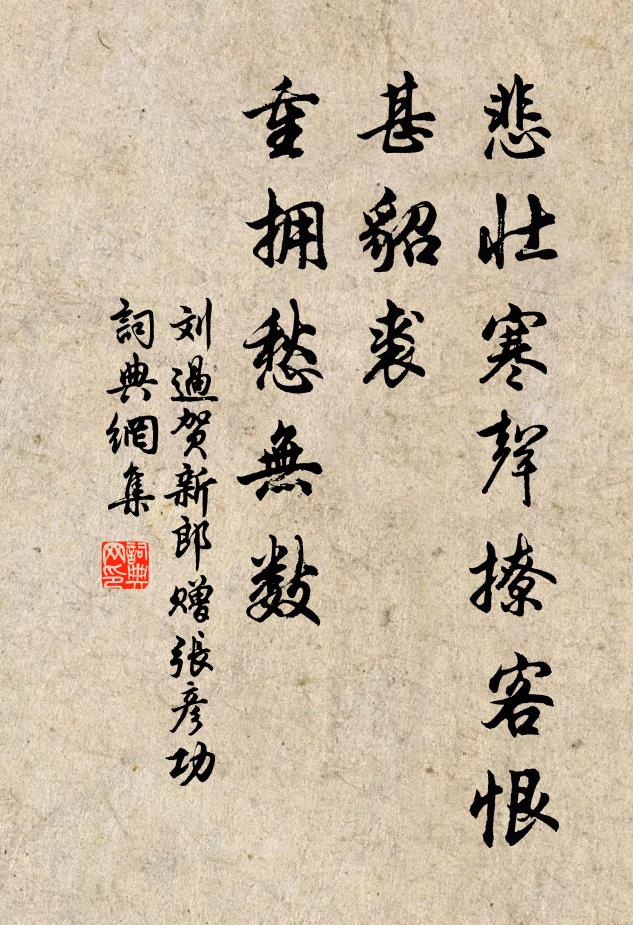 悲壮寒聲撩客恨
甚貂裘
重拥愁無数
刘過贺新郎赠張彦功
詞典網集
詞典网印